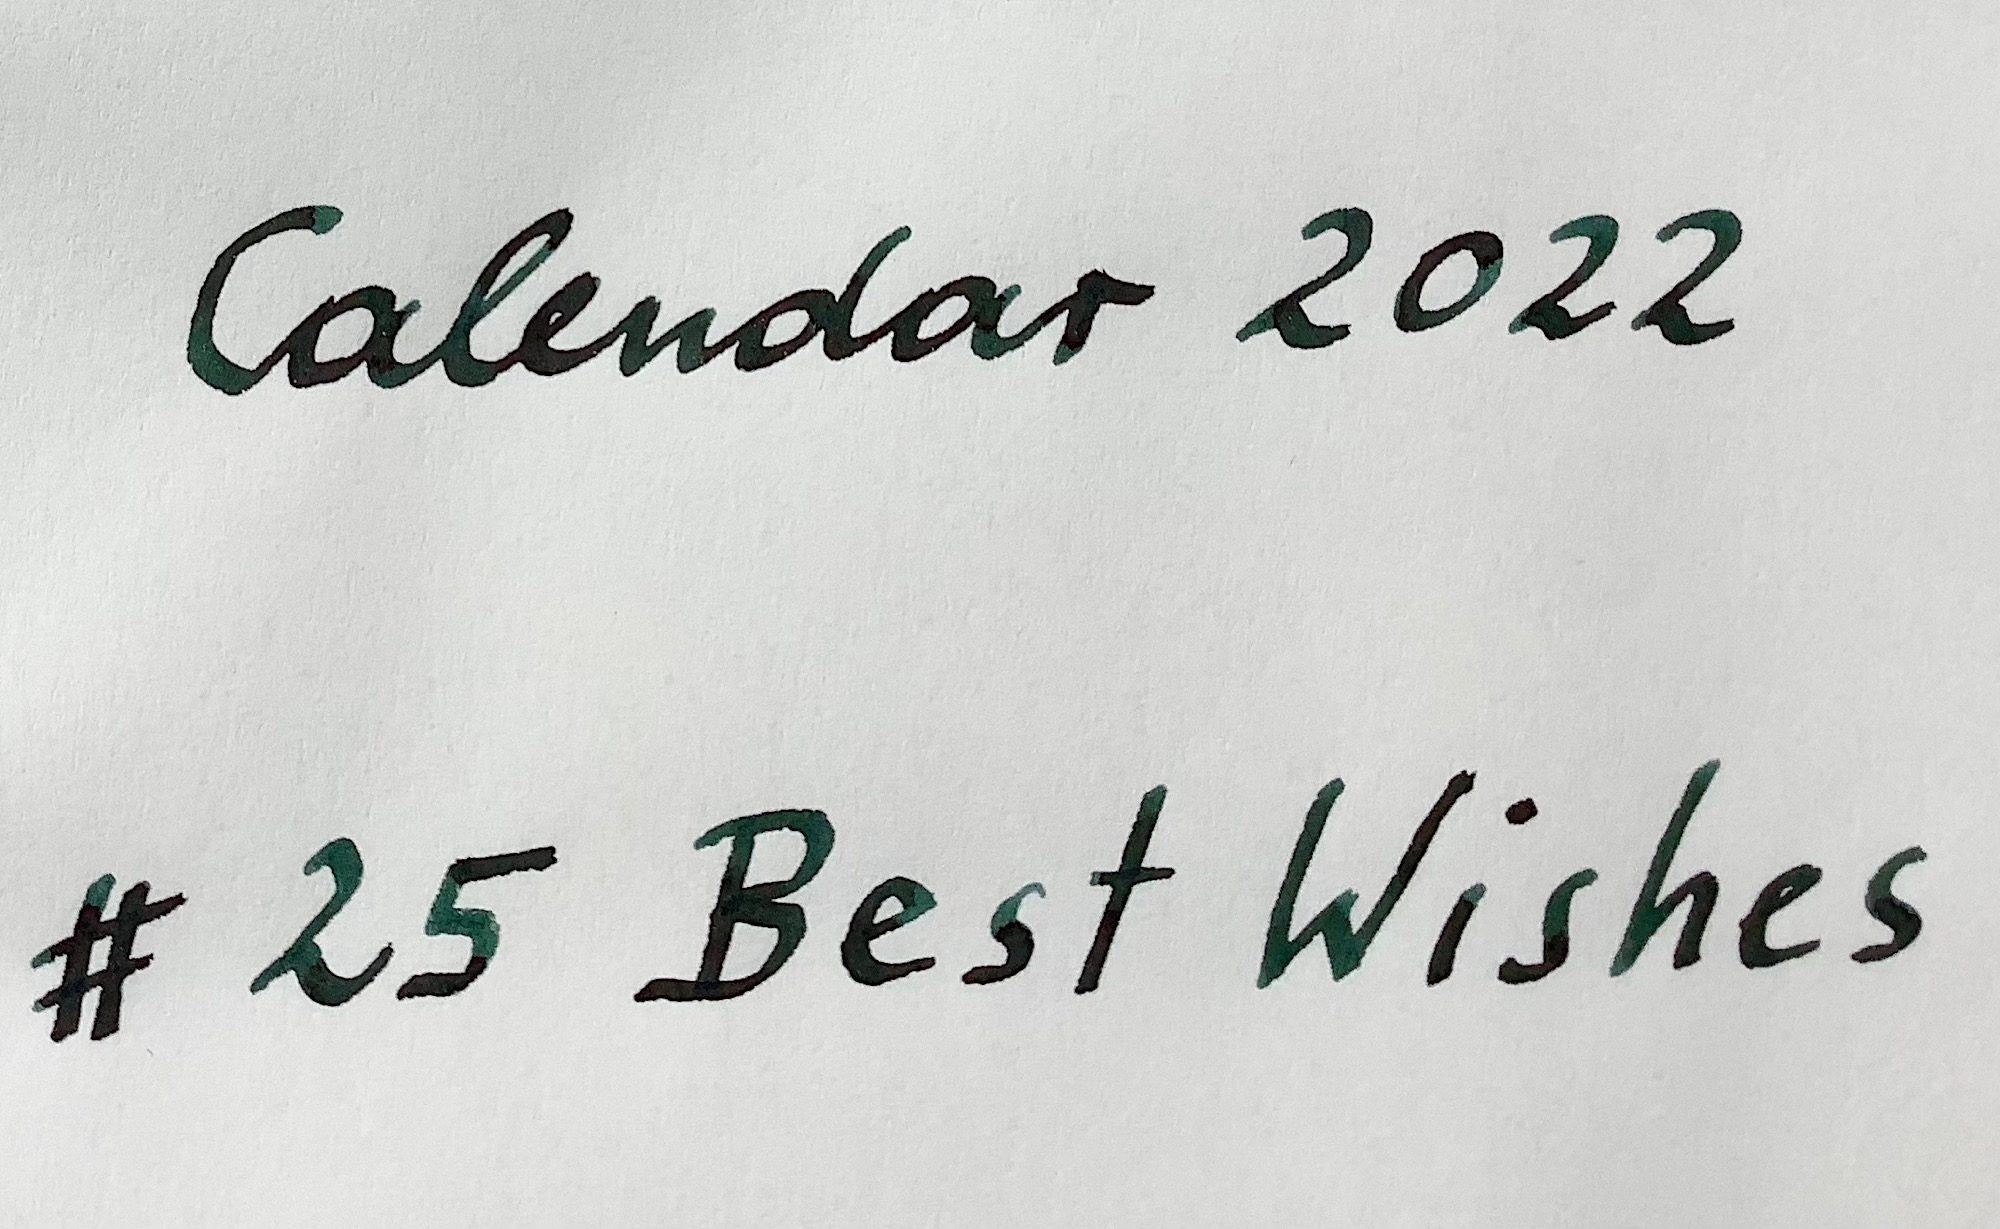 Calendar 2022
# 25 Best Wishes